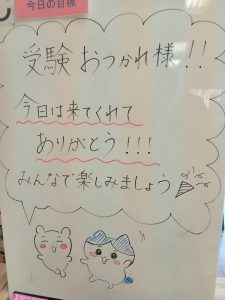 今日の目標
受験おつかれ様!!
今日は来てくれて
ありがとう!!!
みんなで楽しみましょう